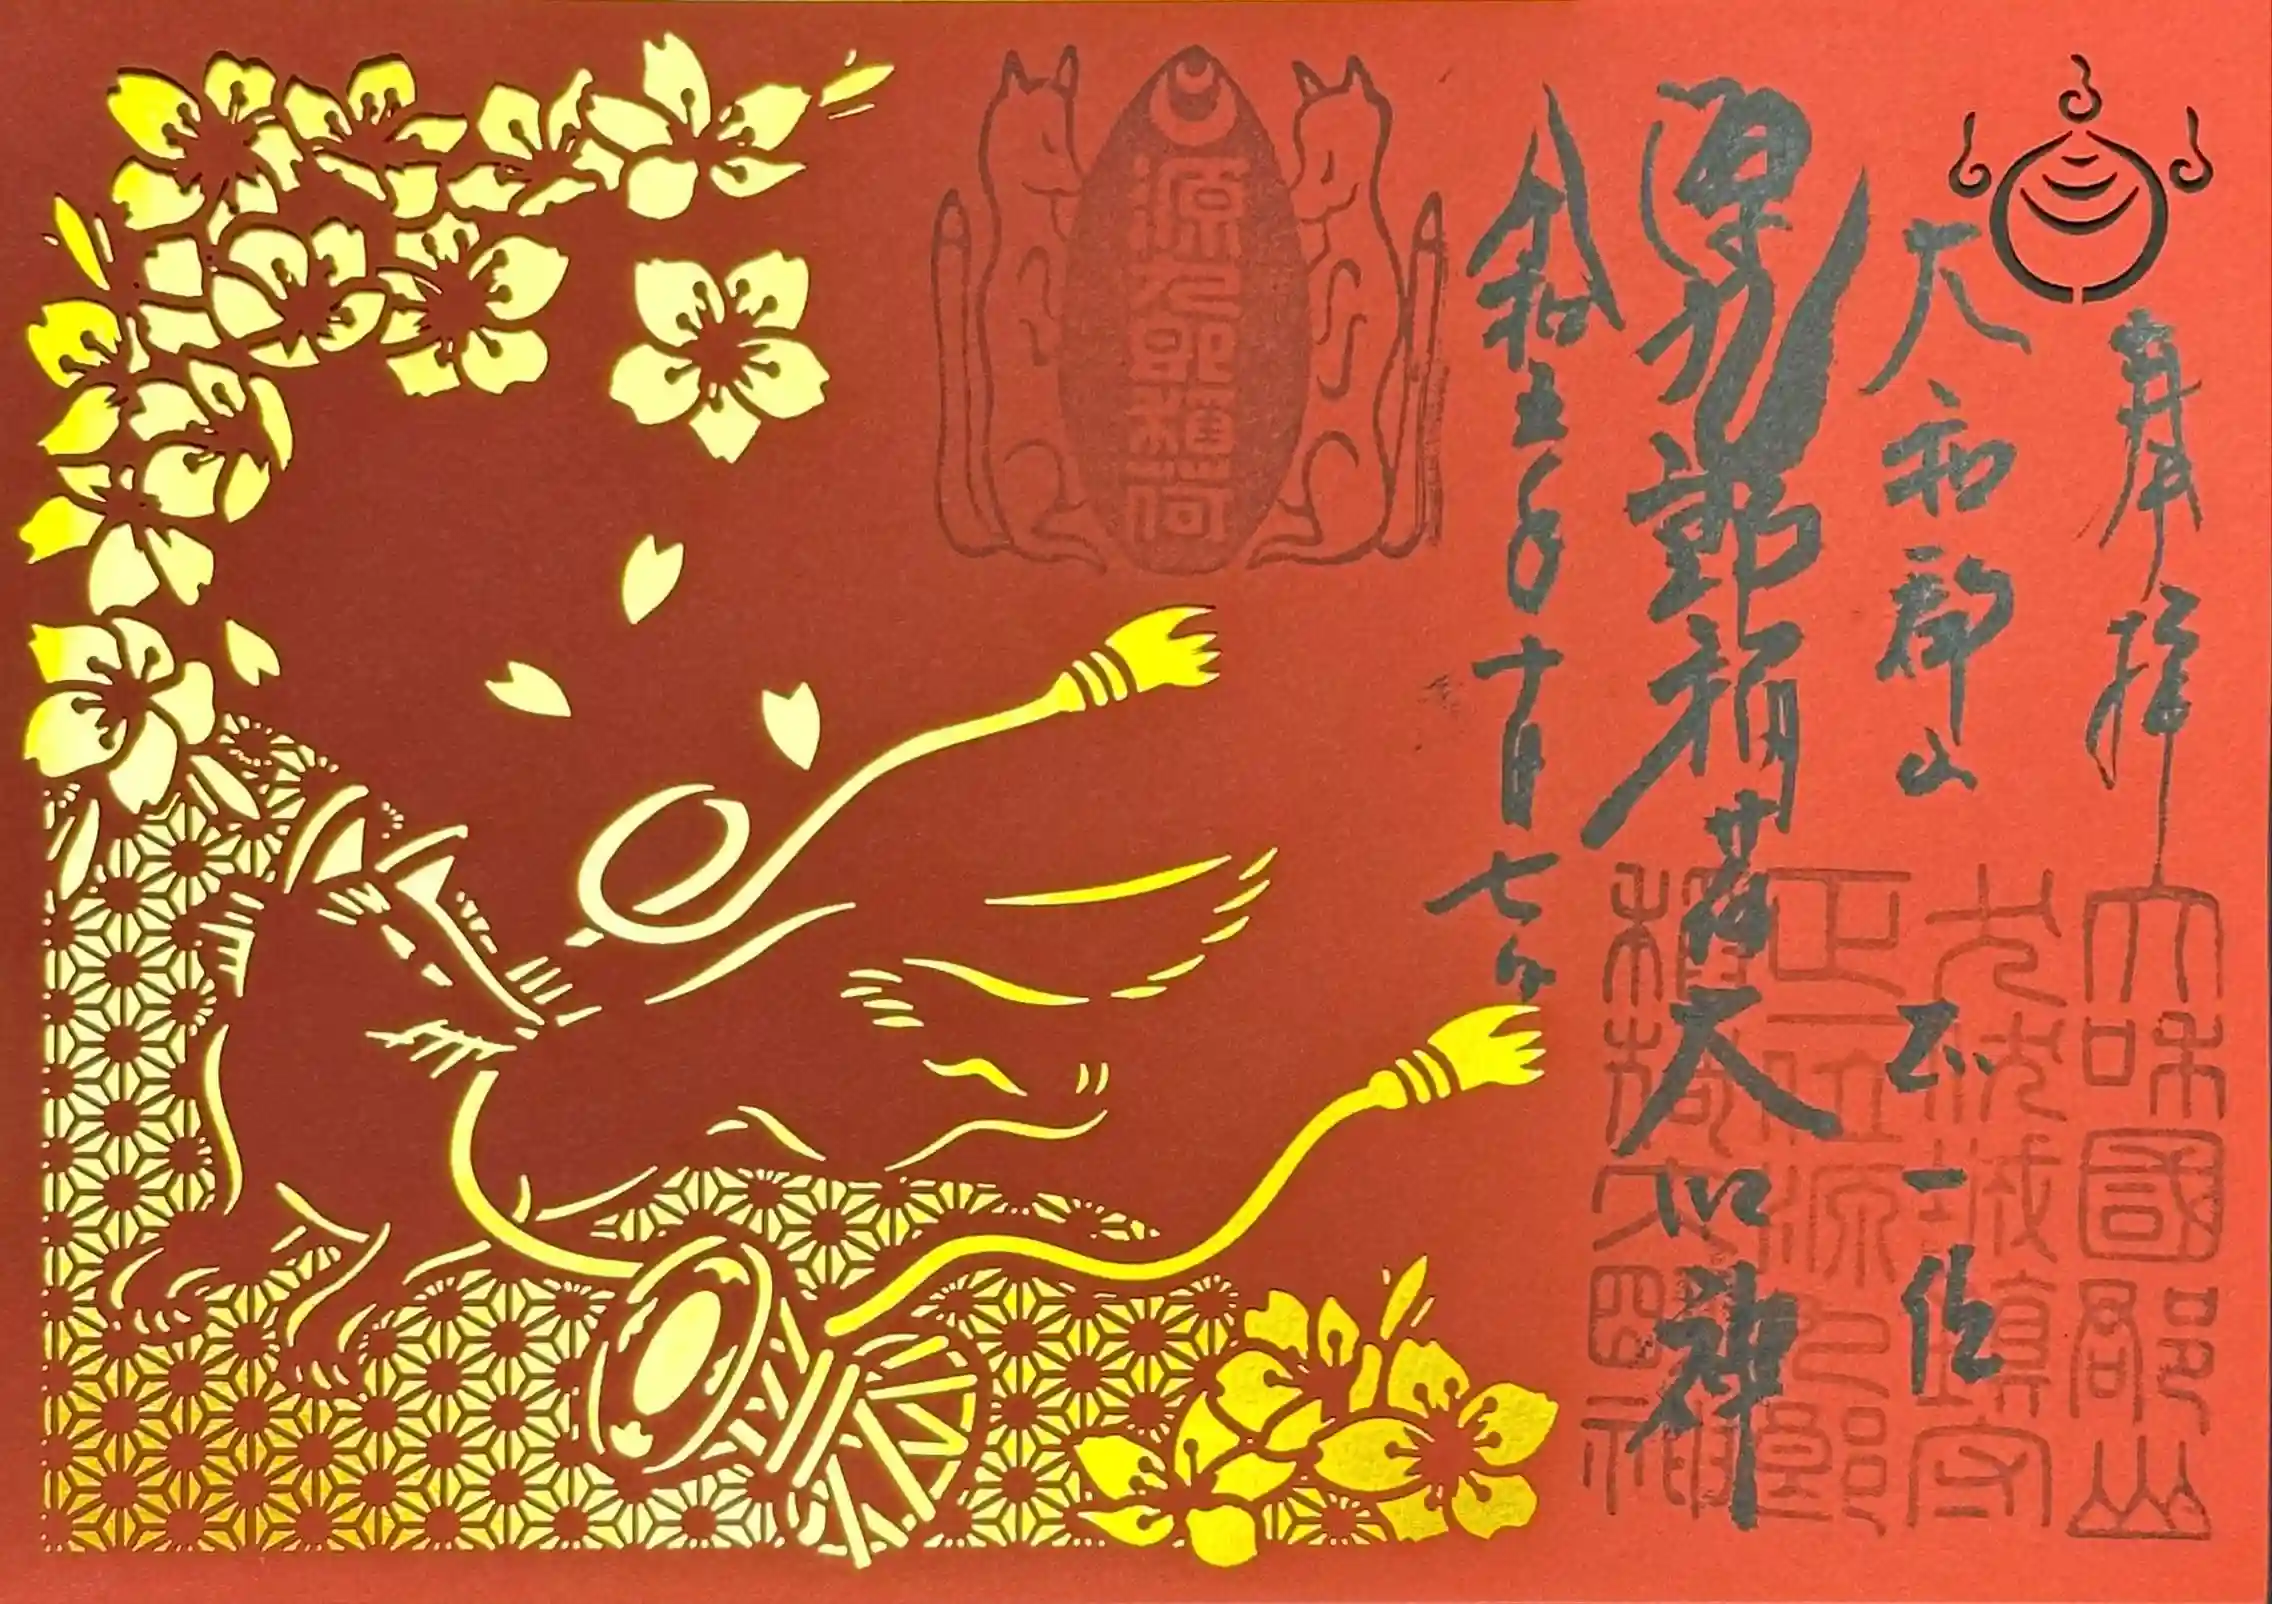 奉拝
大和郡山 正一位
源九郎稲荷大明神
令和五年十月七日
源九郎稲荷
大和國郡山
城鎮守
正一位源九郎
稲荷大明神